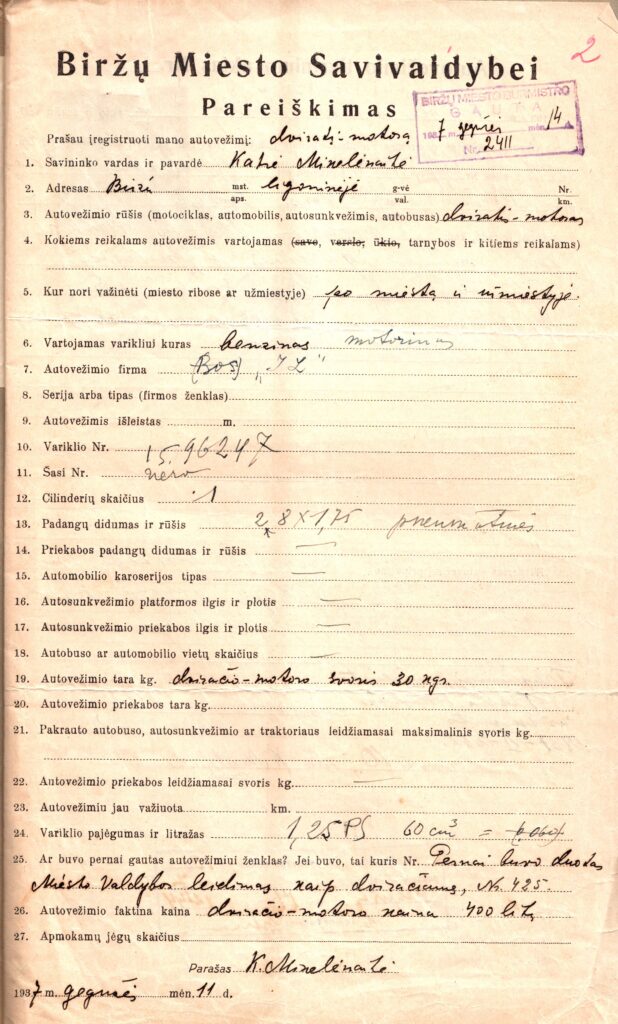 2
Biržų Miesto Savivaldybei
Pareiškimas
BIRŽŲ MIESTO BURMISTRO
1937 m. gegužės mėn. 14
Nr. 2411
Prašau įregistruoti mano autovežimį: dviratį-motorą
1. Savininko vardas ir pavardė Katrė Mikelėnaitė
2. Adresas Biržų mst. ligoninėje g-vė Nr.
aps. val. km.
3. Autovežimio rūšis (motociklas, automobilis, autosunkvežimis, autobusas) dviratis-motoras
4. Kokiems reikalams autovežimis vartojamas (savo, verslo, ūkio, tarnybos ir kitiems reikalams)
5. Kur nori važinėti (miesto ribose ar užmiestyje) po miestą ir užmiestyje.
6. Vartojamas varikliui kuras benzinas motorinas
7. Autovežimio firma „IL"
8. Serija arba tipas (firmos ženklas)
9. Autovežimis išleistas m.
10. Variklio Nr. 1596247
11. Šasi Nr. nėra
12. Cilinderių skaičius 1
13. Padangų didumas ir rūšis 2,8 x 1,75 pneumatinės
14. Priekabos padangų didumas ir rūšis —
15. Automobilio karoserijos tipas —
16. Autosunkvežimio platformos ilgis ir plotis —
17. Autosunkvežimio priekabos ilgis ir plotis —
18. Autobuso ar automobilio vietų skaičius —
19. Autovežimio tara kg. dviračio-motoro svoris 30 kgr.
20. Autovežimio priekabos tara kg.
21. Pakrauto autobuso, autosunkvežimio ar traktoriaus leidžiamasai maksimalinis svoris kg.
22. Autovežimio priekabos leidžiamasai svoris kg. —
23. Autovežimiu jau važiuota km.
24. Variklio pajėgumas ir litražas 1,25 PS 60 cm³ = (0,060)
25. Ar buvo pernai gautas autovežimiui ženklas? Jei buvo, tai kuris Nr. Pernai buvo duotas
Miesto Valdybos leidimas kaip dviračiams, Nr. 425.
26. Autovežimio faktina kaina dviračio-motoro kaina 400 litų
27. Apmokamų jėgų skaičius
Parašas K. Mikelėnaitė
1937 m. gegužės mėn. 11 d.